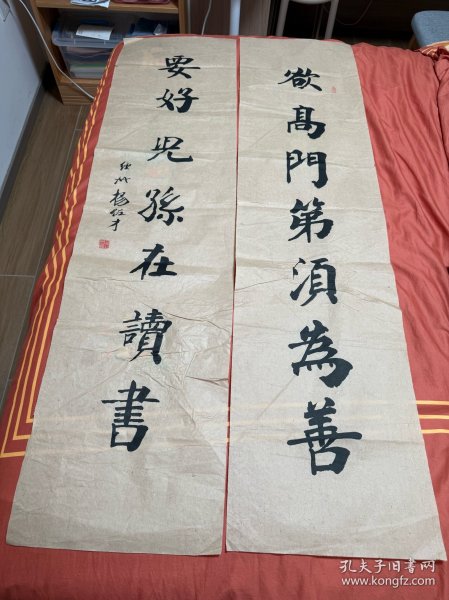 欲高門第須為善
要好兒孫在讀書
孔夫子旧书网
www.kongfz.com